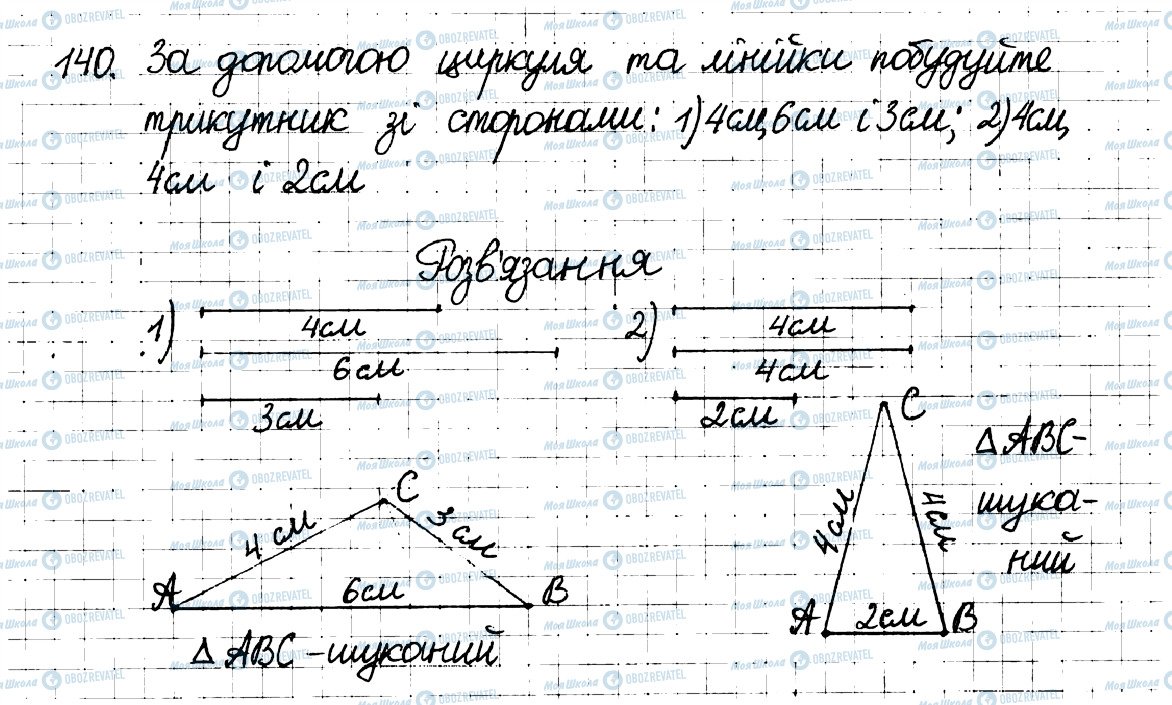 140. За допомогою циркуля та лінійки побудуйте
трикутник зі сторонами: 1) 4см, 6см і 3см; 2) 4см,
4см і 2см
Розв'язання
1)
4см
6см
3см
2)
4см
4см
2см
C
4 см
3 см
A
6см
B
△ ABC - шуканий
C
4см
4см
A
2см
B
△ ABC -
шука-
ний
МояШкола OBOZREVATEL